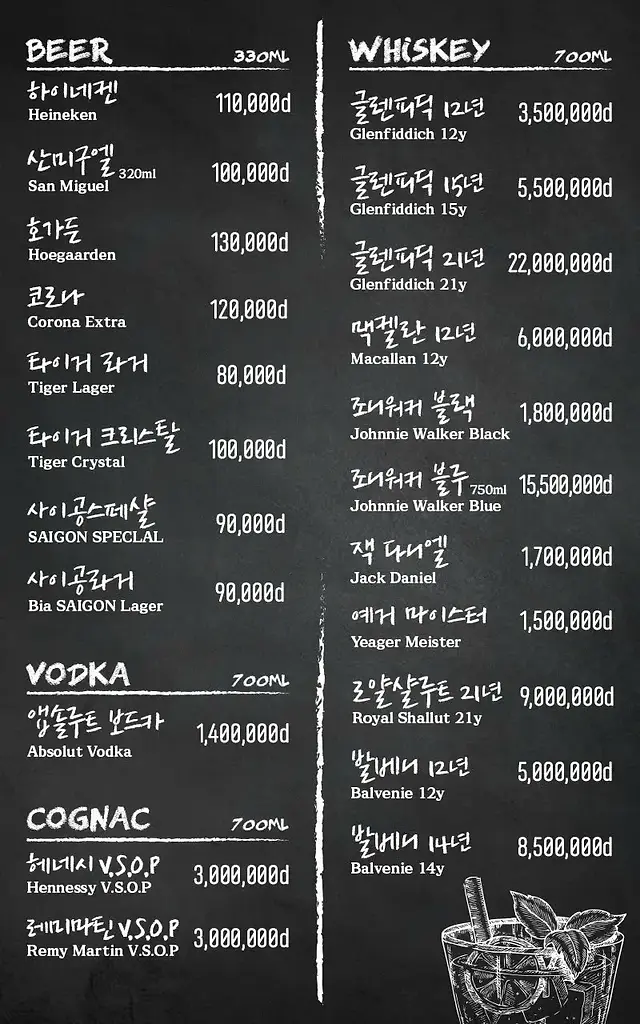 BEER 330ML
하이네켄 110,000d
Heineken
산미구엘 320ml 100,000d
San Miguel
호가든 130,000d
Hoegaarden
코로나 120,000d
Corona Extra
타이거 라거 80,000d
Tiger Lager
타이거 크리스탈 100,000d
Tiger Crystal
사이공스페샬 90,000d
SAIGON SPECLAL
사이공라거 90,000d
Bia SAIGON Lager
VODKA 700ML
앱솔루트 보드카 1,400,000d
Absolut Vodka
COGNAC 700ML
헤네시 V.S.O.P 3,000,000d
Hennessy V.S.O.P
레미마틴 V.S.O.P 3,000,000d
Remy Martin V.S.O.P
WHiSKEY 700ML
글렌피딕 12년 3,500,000d
Glenfiddich 12y
글렌피딕 15년 5,500,000d
Glenfiddich 15y
글렌피딕 21년 22,000,000d
Glenfiddich 21y
맥켈란 12년 6,000,000d
Macallan 12y
조니워커 블랙 1,800,000d
Johnnie Walker Black
조니워커 블루 750ml 15,500,000d
Johnnie Walker Blue
잭 다니엘 1,700,000d
Jack Daniel
예거 마이스터 1,500,000d
Yeager Meister
로얄샬루트 21년 9,000,000d
Royal Shallut 21y
발베니 12년 5,000,000d
Balvenie 12y
발베니 14년 8,500,000d
Balvenie 14y